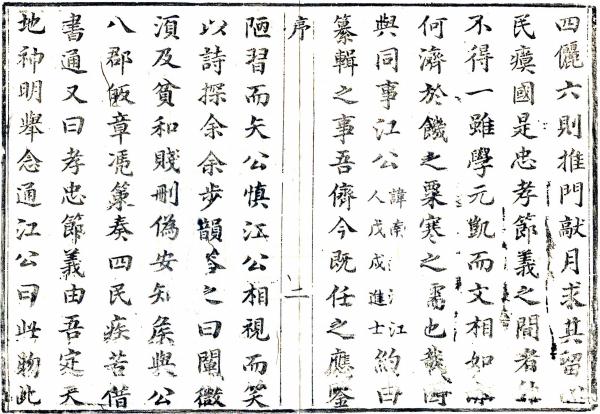 四儷六則推門敲月求其留
民瘼國是忠孝節義之間者
不得一雖學元凱而文相如
何濟於饑之粟寒之也哉
與同事江公諱南江
人戊戌進士
約曰
纂輯之事吾儕今既任之應鑒
序 二
陋習而矢公慎江公相視而笑
以詩探余余步韻答之曰闡微
須及貧和賤刪偽安知矦與公
八郡皈章憑彙奏四民疾苦借
書通又曰孝忠節義由吾定天
地神明舉念通江公曰此物此